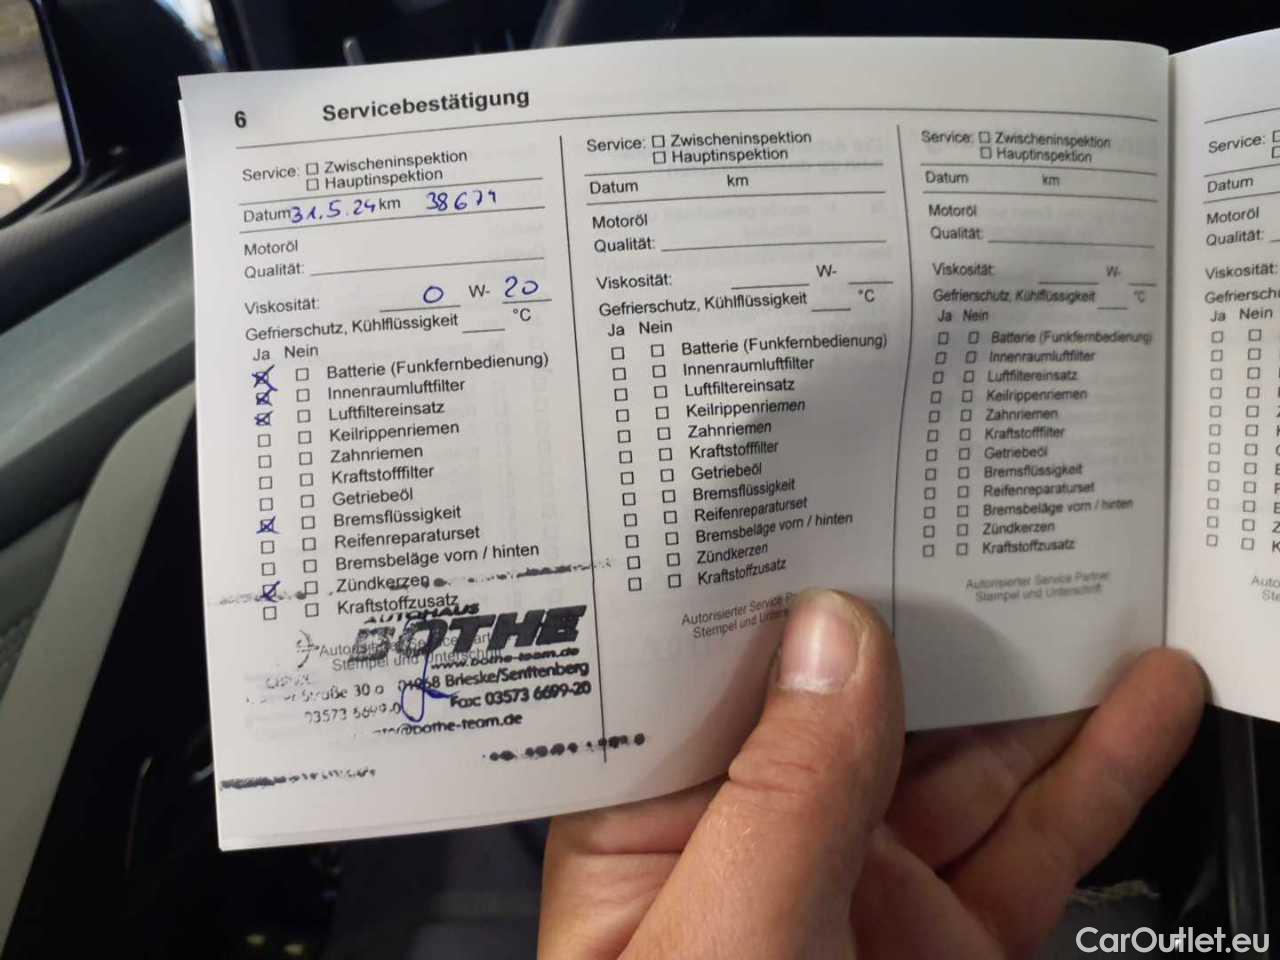 6 Servicebestätigung
Service: Zwischeninspektion
Hauptinspektion
Datum 31.5.24 km 38671
Motoröl
Qualität:
Viskosität: 0 W- 20
Gefrierschutz, Kühlflüssigkeit °C
Ja Nein
Batterie (Funkfernbedienung)
Innenraumluftfilter
Luftfiltereinsatz
Keilrippenriemen
Zahnriemen
Kraftstofffilter
Getriebeöl
Bremsflüssigkeit
Reifenreparaturset
Bremsbeläge vorn / hinten
Zündkerzen
Kraftstoffzusatz
AUTOHAUS
BOTHE
Stempel und Unterschrift
www.bothe-team.de
Straße 30 a 01968 Brieske/Senftenberg
03573 6699-0 Fax: 03573 6699-20
@bothe-team.de
Service: Zwischeninspektion
Hauptinspektion
Datum km
Motoröl
Qualität:
Viskosität: W-
Gefrierschutz, Kühlflüssigkeit °C
Ja Nein
Batterie (Funkfernbedienung)
Innenraumluftfilter
Luftfiltereinsatz
Keilrippenriemen
Zahnriemen
Kraftstofffilter
Getriebeöl
Bremsflüssigkeit
Reifenreparaturset
Bremsbeläge vorn / hinten
Zündkerzen
Kraftstoffzusatz
Autorisierter Service
Stempel und
Service: Zwischeninspektion
Hauptinspektion
Datum km
Motoröl
Qualität:
Viskosität: W-
Gefrierschutz, Kühlflüssigkeit °C
Ja Nein
Batterie (Funkfernbedienung)
Innenraumluftfilter
Luftfiltereinsatz
Keilrippenriemen
Zahnriemen
Kraftstofffilter
Getriebeöl
Bremsflüssigkeit
Reifenreparaturset
Bremsbeläge vorn / hinten
Zündkerzen
Kraftstoffzusatz
Autorisierter Service Partner
Stempel und Unterschrift
Service:
Datum
Motoröl
Qualität:
Viskosität:
Ja Nein
CarOutlet.eu